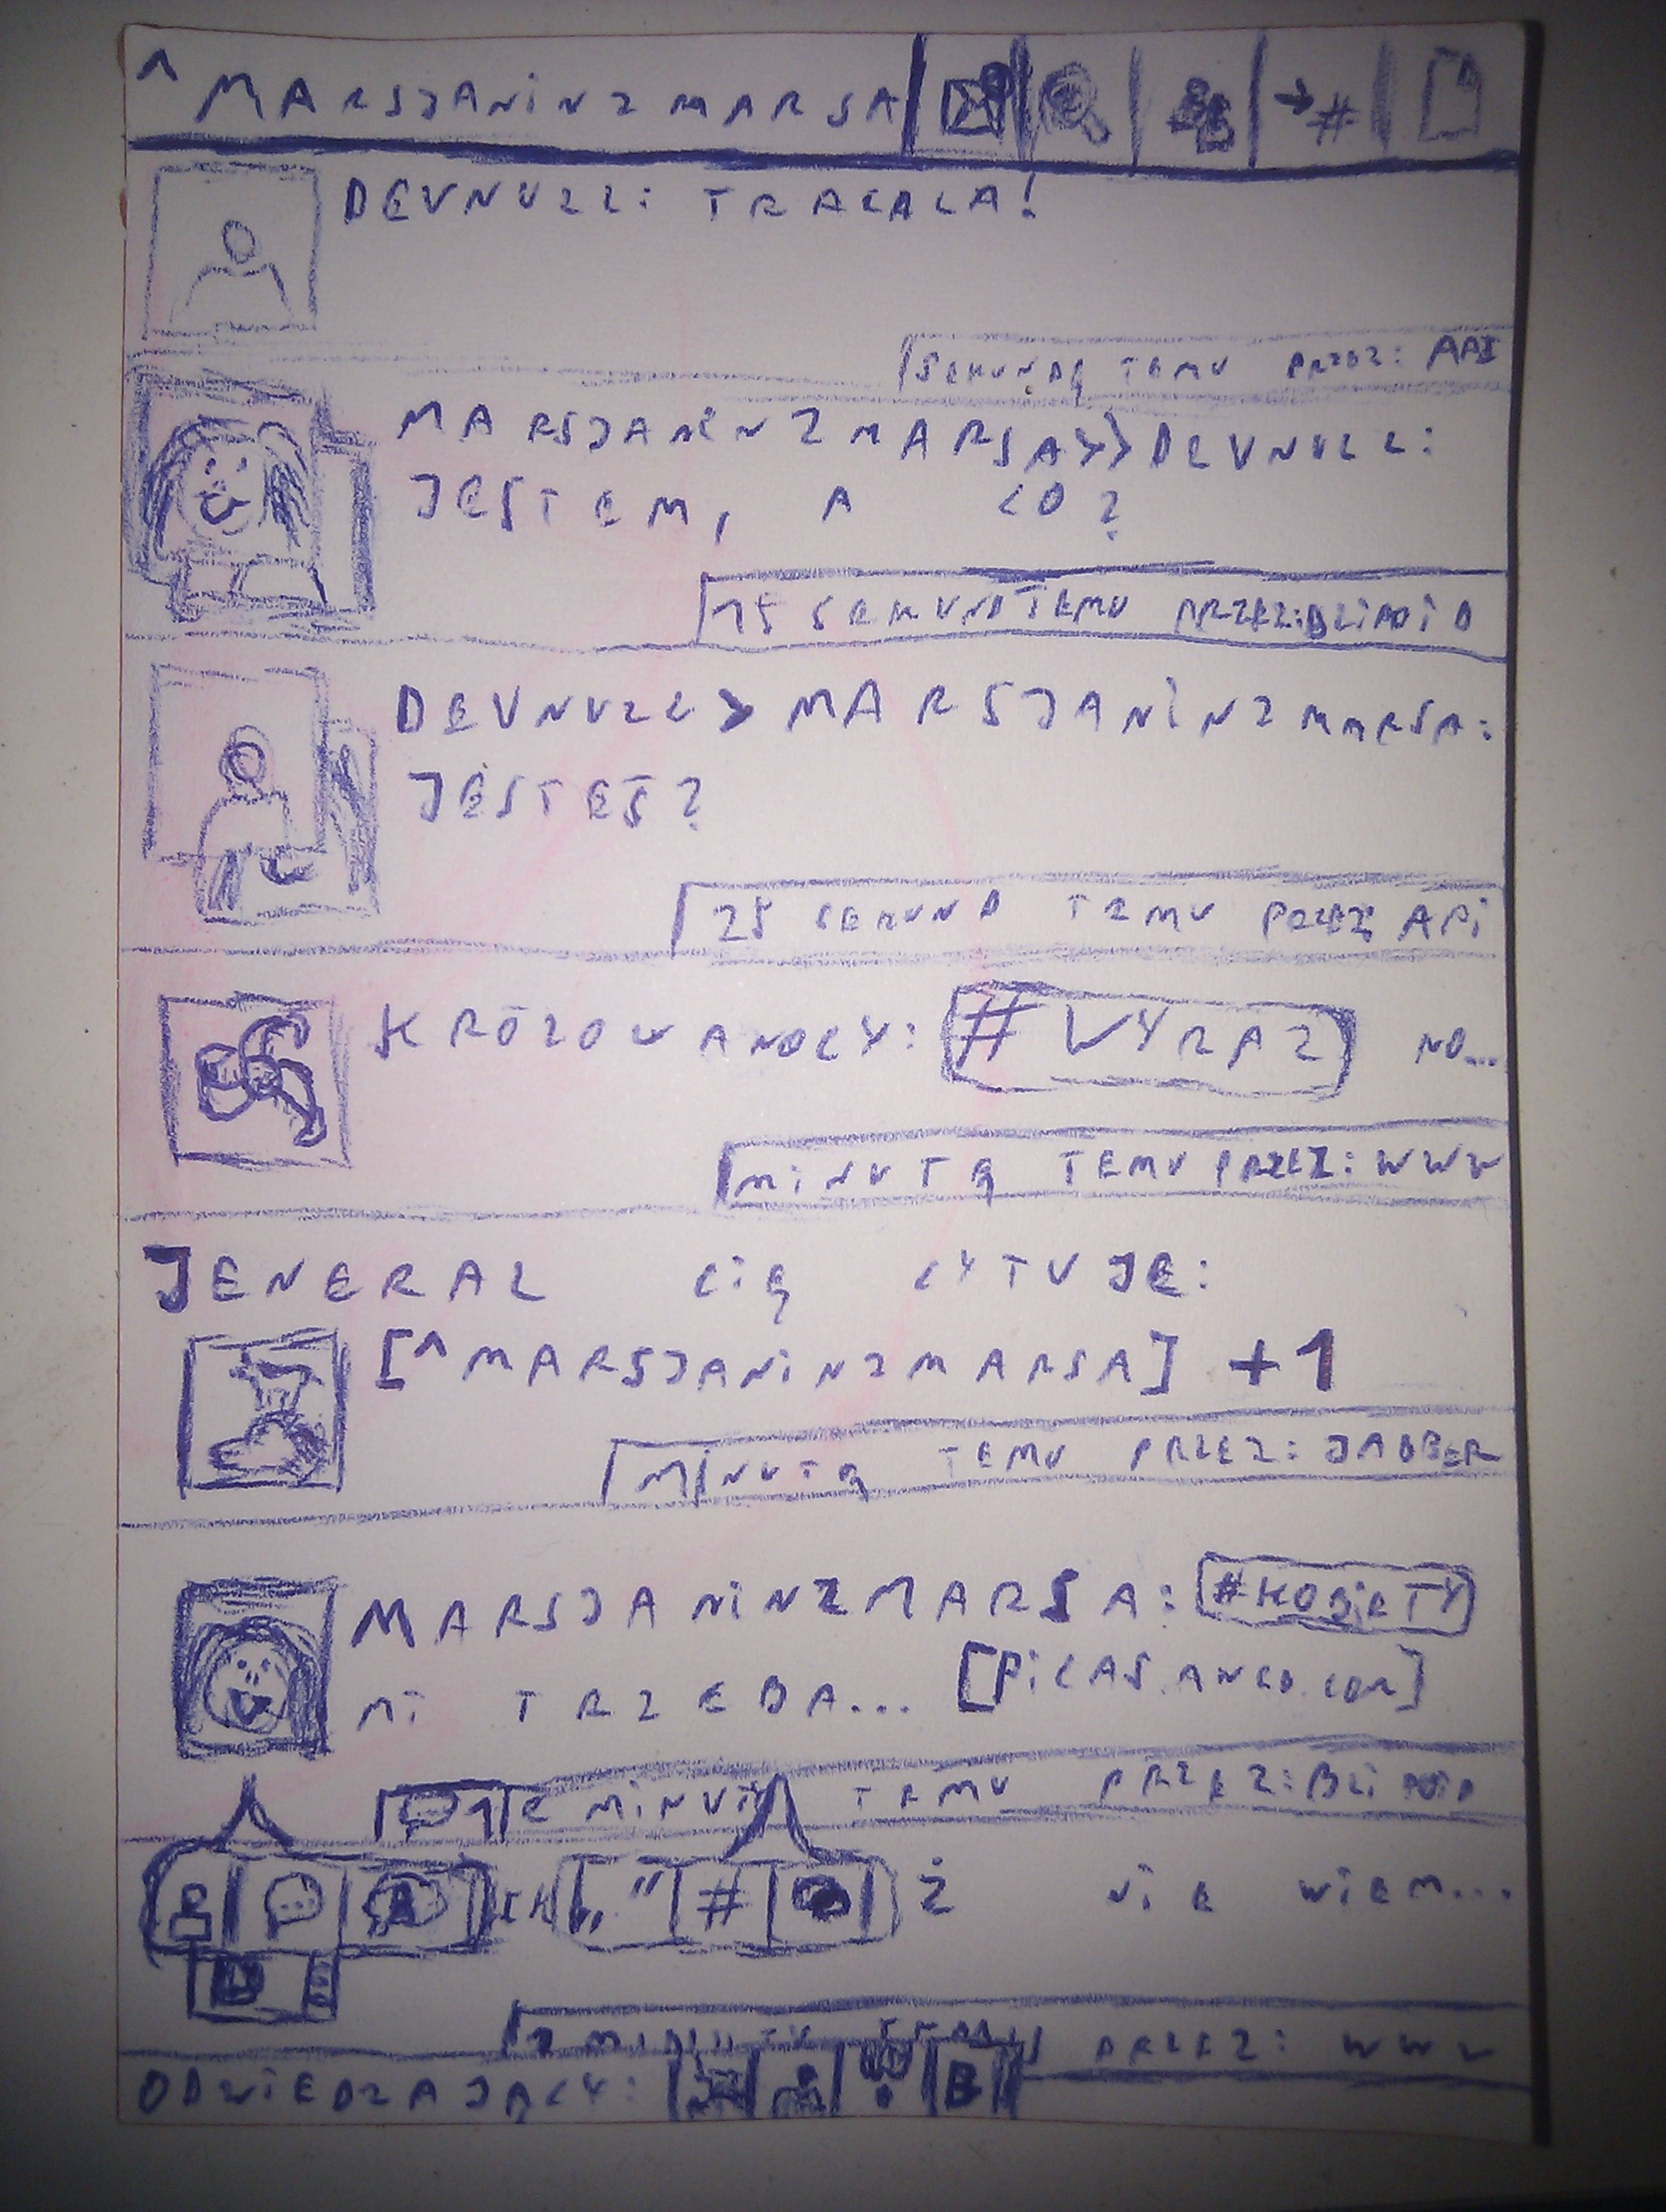 ^MARSJANINZMARSA → #
DEVNULL: TRALALA!
SEKUNDĘ TEMU PRZEZ: API
MARSJANINZMARSA>>DEVNULL:
JESTEM, A CO?
15 SEKUND TEMU PRZEZ: BLIPOID
DEVNULL>MARSJANINZMARSA:
JESTEŚ?
25 SEKUND TEMU PRZEZ API
#WYRAZ NO...
MINUTĘ TEMU PRZEZ: WWW
JENERAL CIĘ CYTUJE:
[^MARSJANINZMARSA] +1
MINUTĘ TEMU PRZEZ: JABBER
MARSJANINZMARSA: #KOBIETY
MI TRZEBA...
MINUTY TEMU PRZEZ: BLIPOID
„" # Ż NIE WIEM...
2 MINUTY TEMU PRZEZ: WWW
ODWIEDZAJĄCY: B